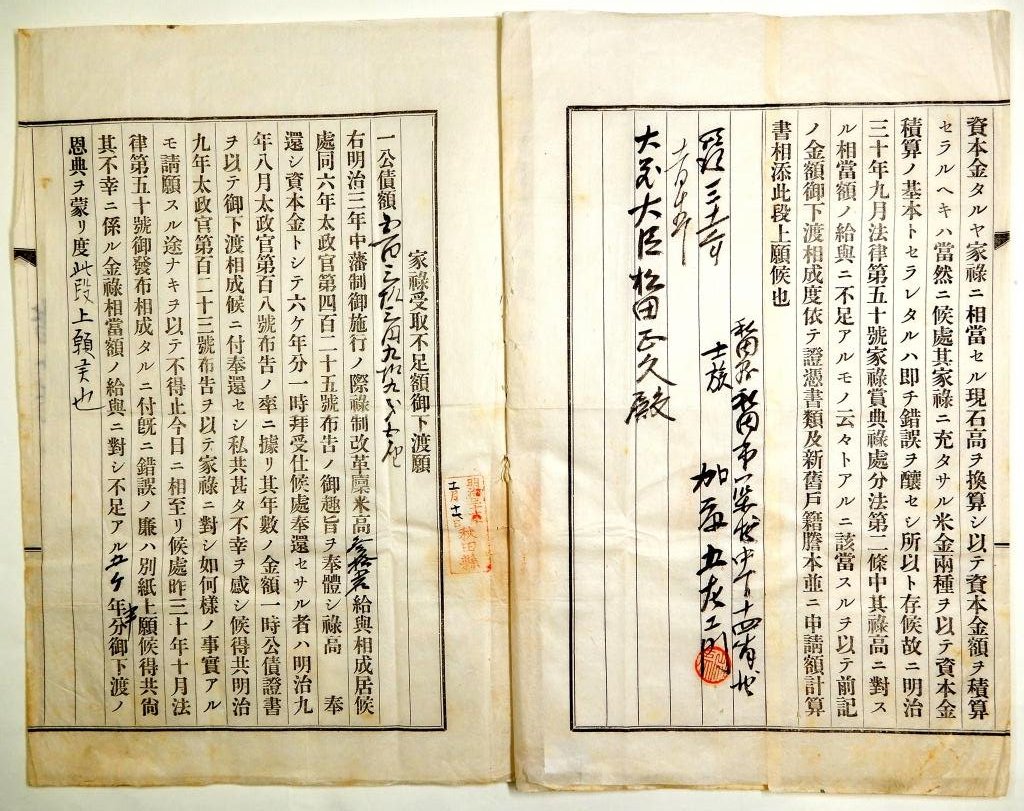 資本金タルヤ家祿ニ相當セル現石高ヲ換算シ以テ資本金額ヲ積算
セラルヘキハ當然ニ候處其家祿ニ充タサル米金兩種ヲ以テ資本金
積算ノ基本トセラレタルハ即チ錯誤ヲ釀セシ所以ト存候故ニ明治
三十年九月法律第五十號家祿賞典祿處分法第二條中其祿高ニ對ス
ル相當額ノ給與ニ不足アルモノ云々トアルニ該當スルヲ以テ前記
ノ金額御下渡相成度依テ證憑書類及新舊戶籍謄本並ニ申請額計算
書相添此段上願候也
秋田縣秋田市
士族 加藤
明治三十一年
大藏大臣松田正久殿
家祿受取不足額御下渡願
一公債額
右明治三年中藩制御施行ノ際祿制改革廩米高 給與相成居候
處同六年太政官第四百二十五號布告ノ御趣旨ヲ奉體シ祿高 奉
還シ資本金トシテ六ケ年分一時拜受仕候處奉還セサル者ハ明治九
年八月太政官第百八號布告ノ率ニ據リ其年數ノ金額一時公債證書
ヲ以テ御下渡相成候ニ付奉還セシ私共甚タ不幸ヲ感シ候得共明治
九年太政官第百二十三號布告ヲ以テ家祿ニ對シ如何樣ノ事實アル
モ請願スル途ナキヲ以テ不得止今日ニ相至リ候處昨三十年十月法
律第五十號御發布相成タルニ付旣ニ錯誤ノ廉ハ別紙上願候得共尙
其不幸ニ係ル金祿相當額ノ給與ニ對シ不足アル五ケ年半分御下渡ノ
恩典ヲ蒙リ度此段上願候也